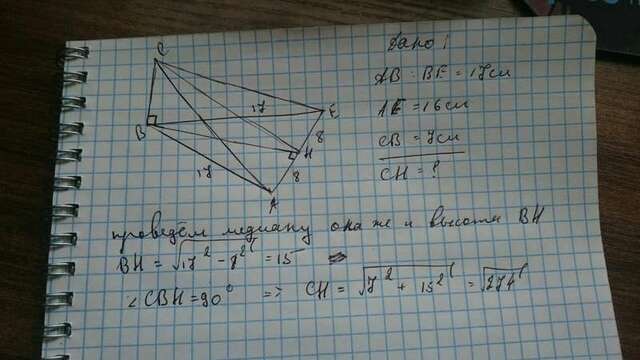 C
17
E
B
8
H
17
8
A
Дано:
AB = BE = 17см
AE = 16 см
CB = 7см
CH = ?
проведём медиану она же и высота BH
BH = √17² - 8² = 15 =>
∠CBH = 90° => CH = √7² + 15² = √274